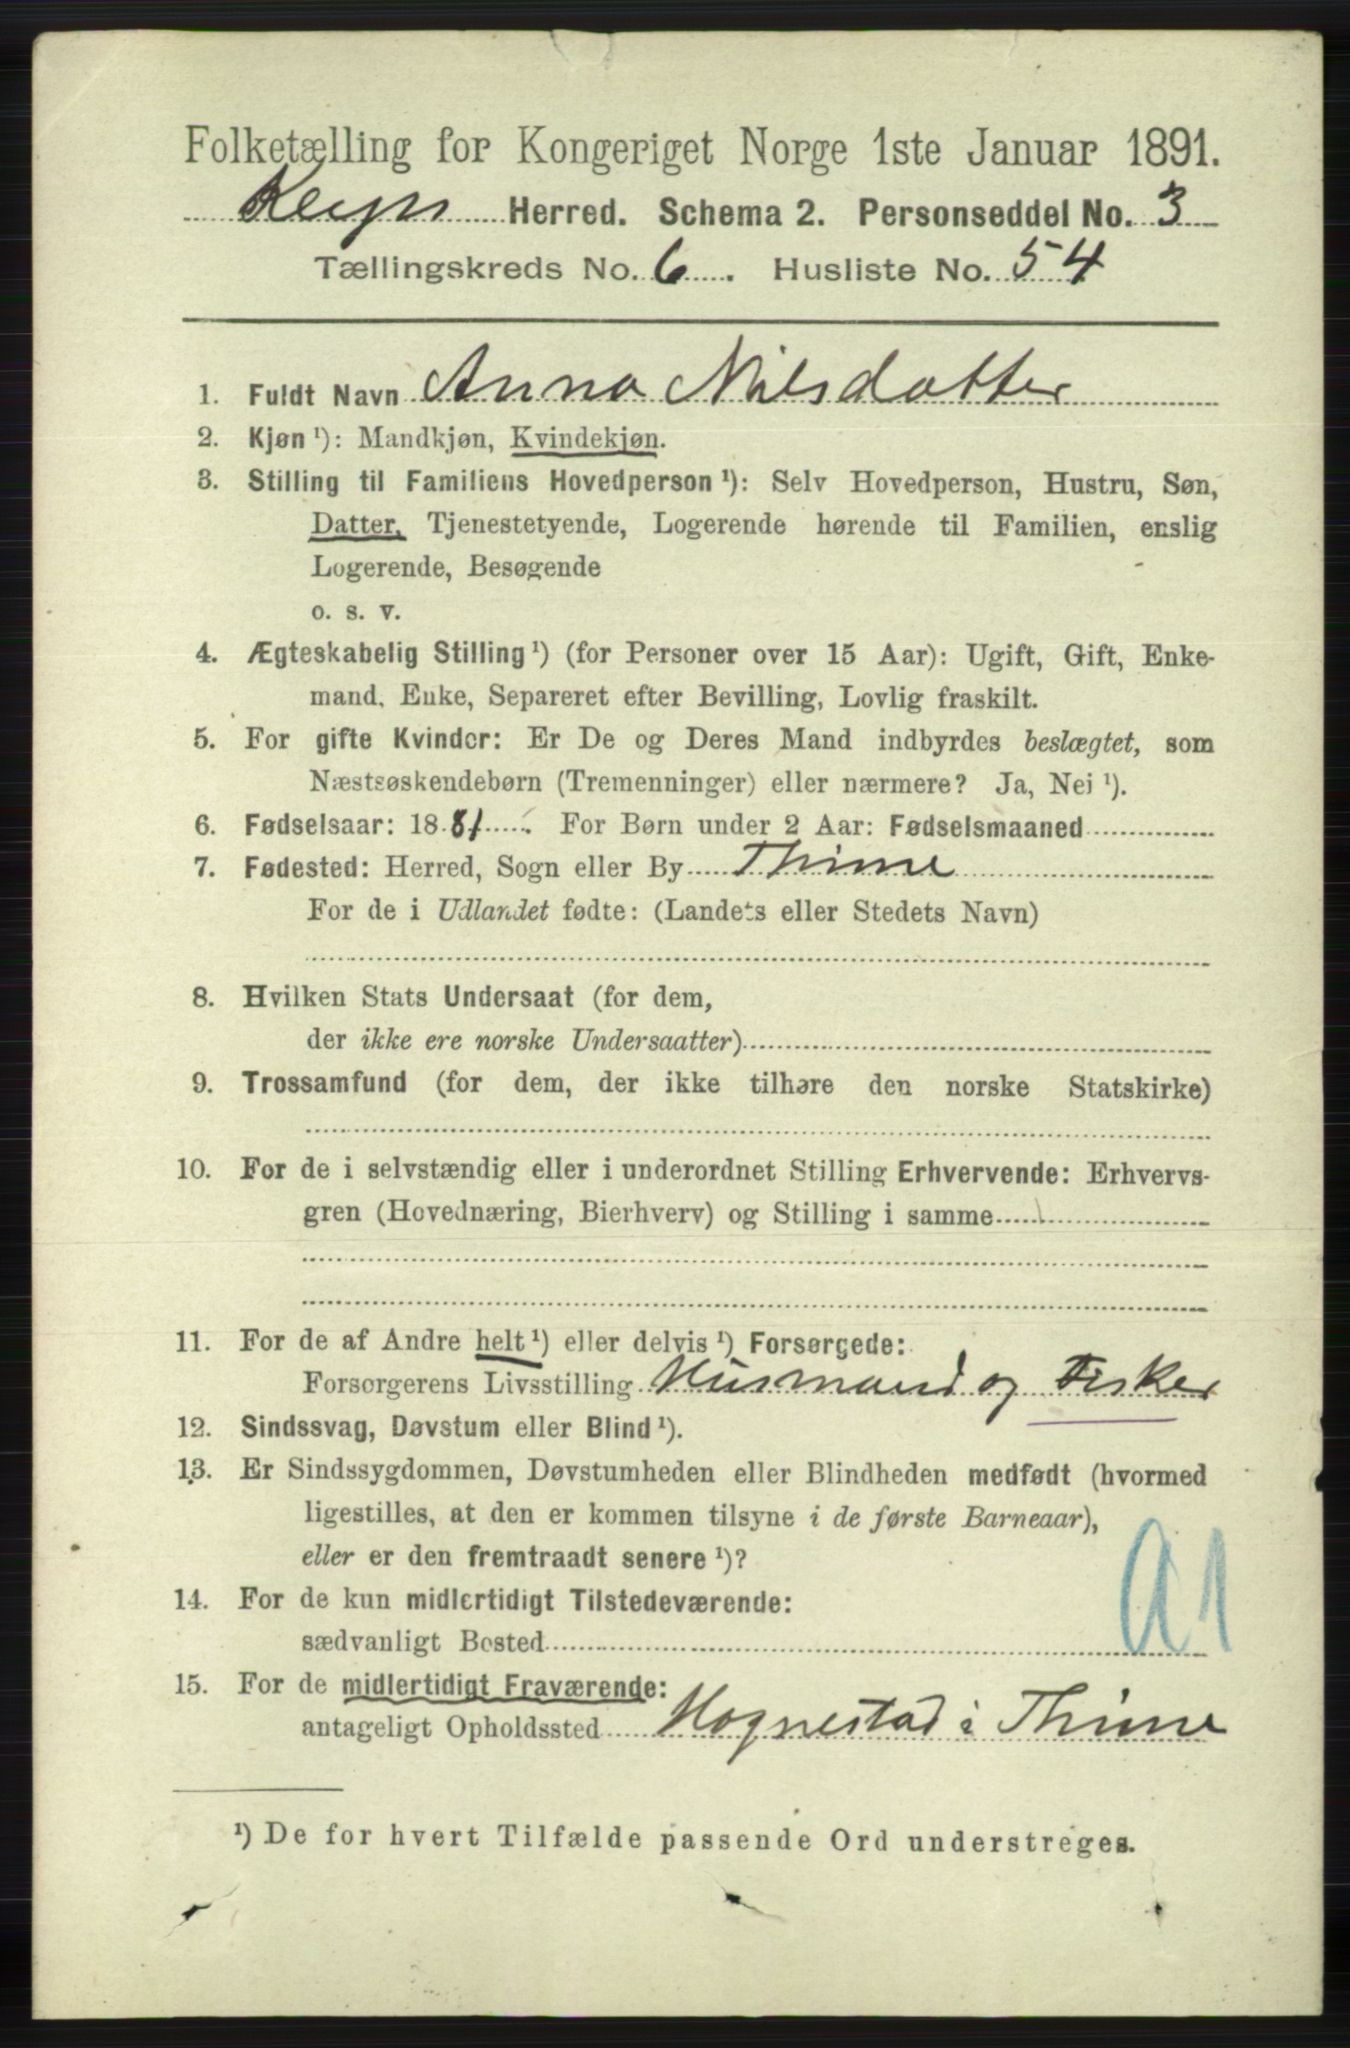 Folketælling for Kongeriget Norge 1ste Januar 1891.
Klep Herred. Schema 2. Personseddel No. 3
Tællingskreds No. 6. Husliste No. 54
1. Fuldt Navn Anna Nilsdatter
2. Kjøn ¹): Mandkjøn, Kvindekjøn.
3. Stilling til Familiens Hovedperson ¹): Selv Hovedperson, Hustru, Søn,
Datter, Tjenestetyende, Logerende hørende til Familien, enslig
Logerende, Besøgende
o. s. v.
4. Ægteskabelig Stilling ¹) (for Personer over 15 Aar): Ugift, Gift, Enke-
mand, Enke, Separeret efter Bevilling, Lovlig fraskilt.
5. For gifte Kvinder: Er De og Deres Mand indbyrdes beslægtet, som
Næstsøskendebørn (Tremenninger) eller nærmere? Ja, Nei ¹).
6. Fødselsaar: 1881. For Børn under 2 Aar: Fødselsmaaned
7. Fødested: Herred, Sogn eller By Thime
For de i Udlandet fødte: (Landets eller Stedets Navn)
8. Hvilken Stats Undersaat (for dem,
der ikke ere norske Undersaatter)
9. Trossamfund (for dem, der ikke tilhøre den norske Statskirke)
10. For de i selvstændig eller i underordnet Stilling Erhvervende: Erhvervs-
gren (Hovednæring, Bierhverv) og Stilling i samme
11. For de af Andre helt ¹) eller delvis ¹) Forsørgede:
Forsørgerens Livsstilling Husmand og Fisker
12. Sindssvag, Døvstum eller Blind ¹).
13. Er Sindssygdommen, Døvstumheden eller Blindheden medfødt (hvormed
ligestilles, at den er kommen tilsyne i de første Barneaar),
eller er den fremtraadt senere ¹)?
14. For de kun midlertidigt Tilstedeværende:
sædvanligt Bosted
A1
15. For de midlertidigt Fraværende:
antageligt Opholdssted Hognestad i Thime
¹) De for hvert Tilfælde passende Ord understreges.